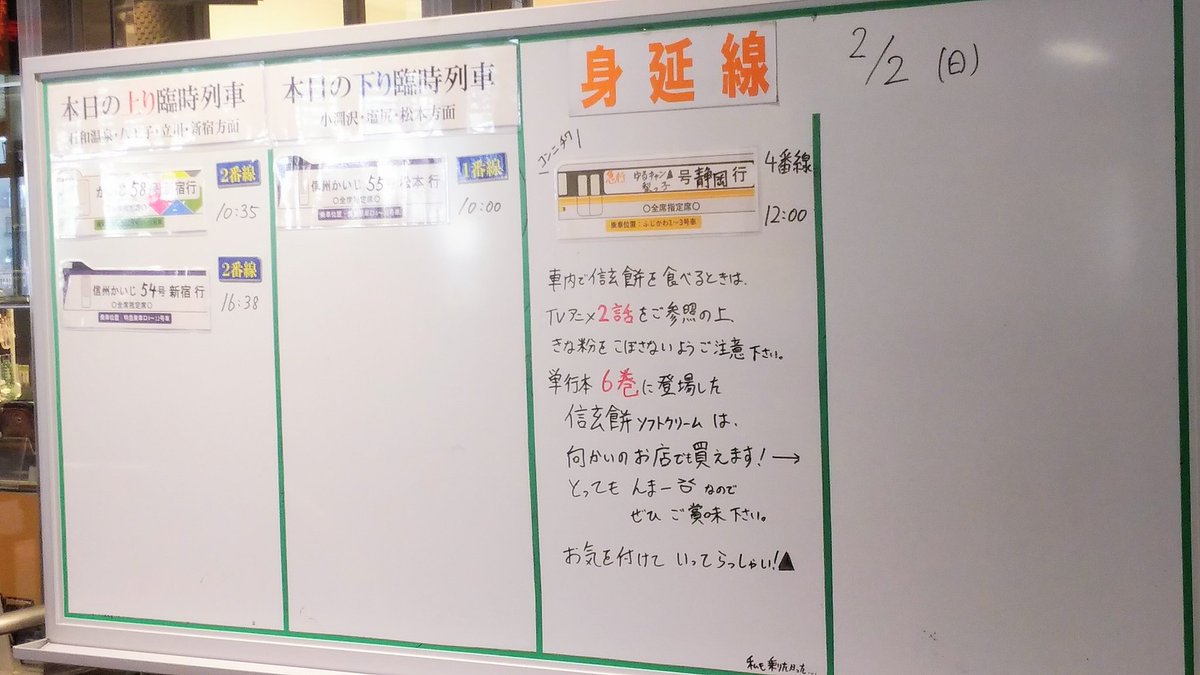 本日の上り臨時列車
石和温泉・八王子・立川・新宿方面
58
宿行
2番線
10:35
信州かいじ 54号 新宿 行
○全席指定席○
2番線
16:38
本日の下り臨時列車
小淵沢・塩尻・松本方面
信州かいじ 55 松本 行
○全席指定席○
1番線
10:00
身延線
コンニチワ
急行 ゆるキャン▲ 梨っ子 号 静岡 行
○全席指定席○
乗車位置:ふじかわ1~3号車
4番線
12:00
車内で信玄餅を食べるときは、
TVアニメ2話をご参照の上、
きな粉をこぼさないようご注意下さい。
単行本 6巻に登場した
信玄餅ソフトクリーム は、
向かいのお店でも買えます!→
とっても んまー なので
ぜひ ご賞味下さい。
お気を付けて いってらっしゃい!▲
私も乗りたかった...
2/2 (日)